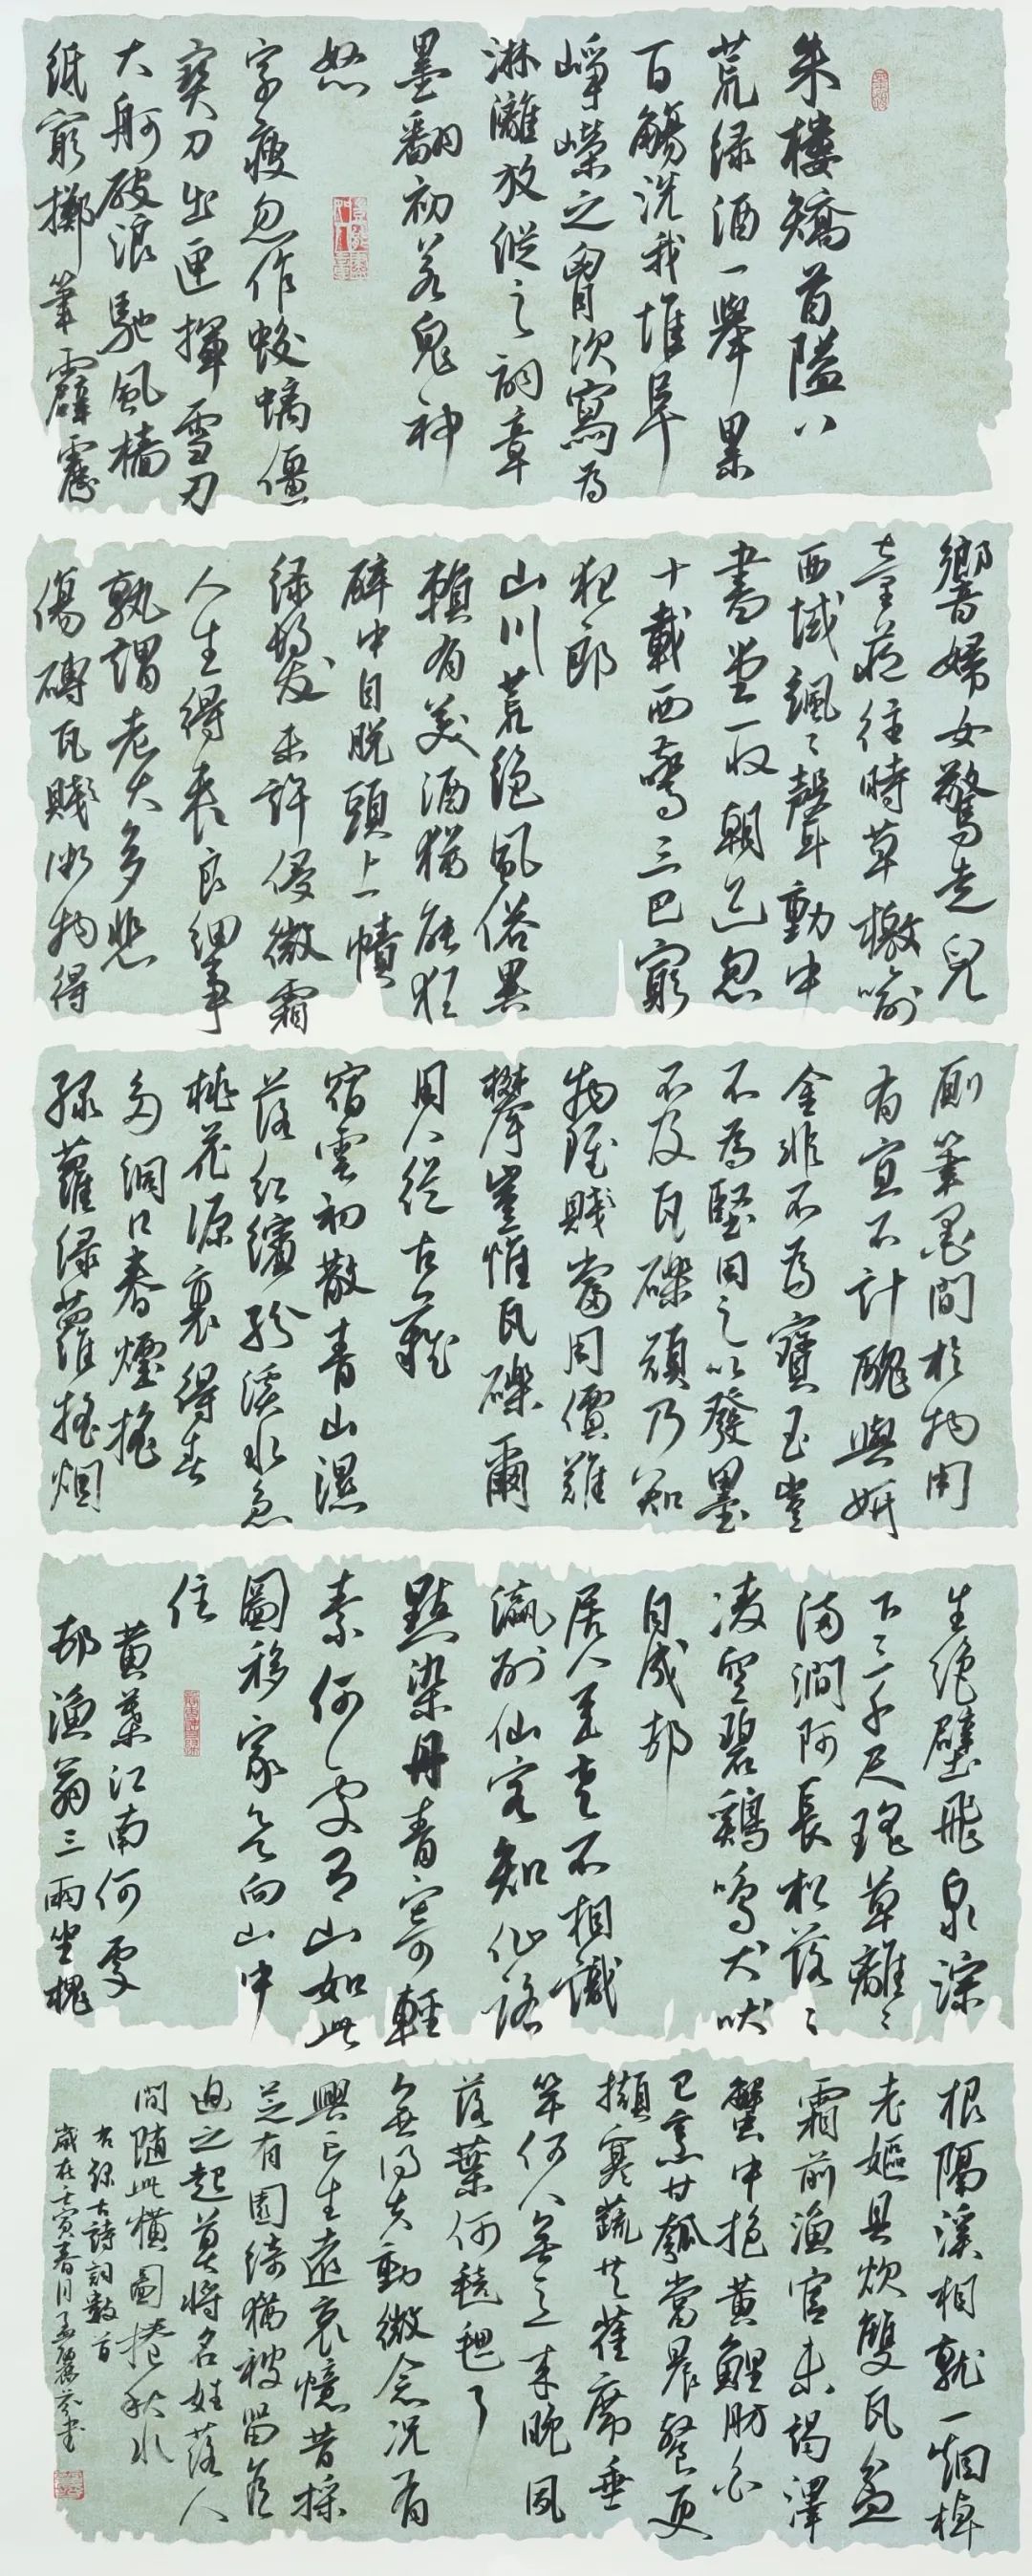 朱樓矯首隘八
荒绿酒一舉累
百觴洗我堆阜
崢嶸之胷次寫為
淋漓放縱之詞章
墨翻初若鬼神
怒
字瘦忽作蛟螭僵
寶刀出匣揮雪刃
大舸破浪馳風檣
紙窮擲筆霹靂
響婦女驚走兒
童藏往時草檄喻
西域颯颯聲動中
書堂一收朝迹忽
十載西夸三巴窮
夜郎
山川荒绝風俗異
賴有美酒猶能狂
醉中自脱頭上幘
绿髮未許侵微霜
人生得丧良細事
孰謂老大多悲
傷磚瓦賤微物得
厠筆墨間於物用
有宜不計醜與妍
金非不為寶玉豈
不為堅用之以發墨
不及瓦礫頑乃知
物雖賤當用價難
攀豈惟瓦礫爾
用人從古難
宿雲初散青山濕
落红繽紛溪水急
桃花源裏得春
多洞口春煙摇
绿蘿绿蘿摇烟
生绝壁飛泉淙
下三千尺瑶草離離
满澗阿長松落落
凌空碧鷄鳴犬吠
自成邨
居人至老不相識
瀛洲仙客知仙路
點染丹青寄輕
素何處有山如此
圖移家欲向山中
住
黄葉江南何處
邨漁翁三兩坐槐
根隔溪相就一烟棹
老嫗具炊雙瓦盆
霜前漁官未竭澤
蟹中抱黄鯉肪白
已烹甘瓠當晨餐更
擷寒蔬共萑席垂
竿何人無意来晚風
落葉何毵毸了
無得失動微念况有
興亡生遠哀憶昔採
芝有園綺猶被留侯
迫之起莫將名姓落人
間随此横圖捲秋水
古詩詞數首
歲在壬寅春月孟麗芬書